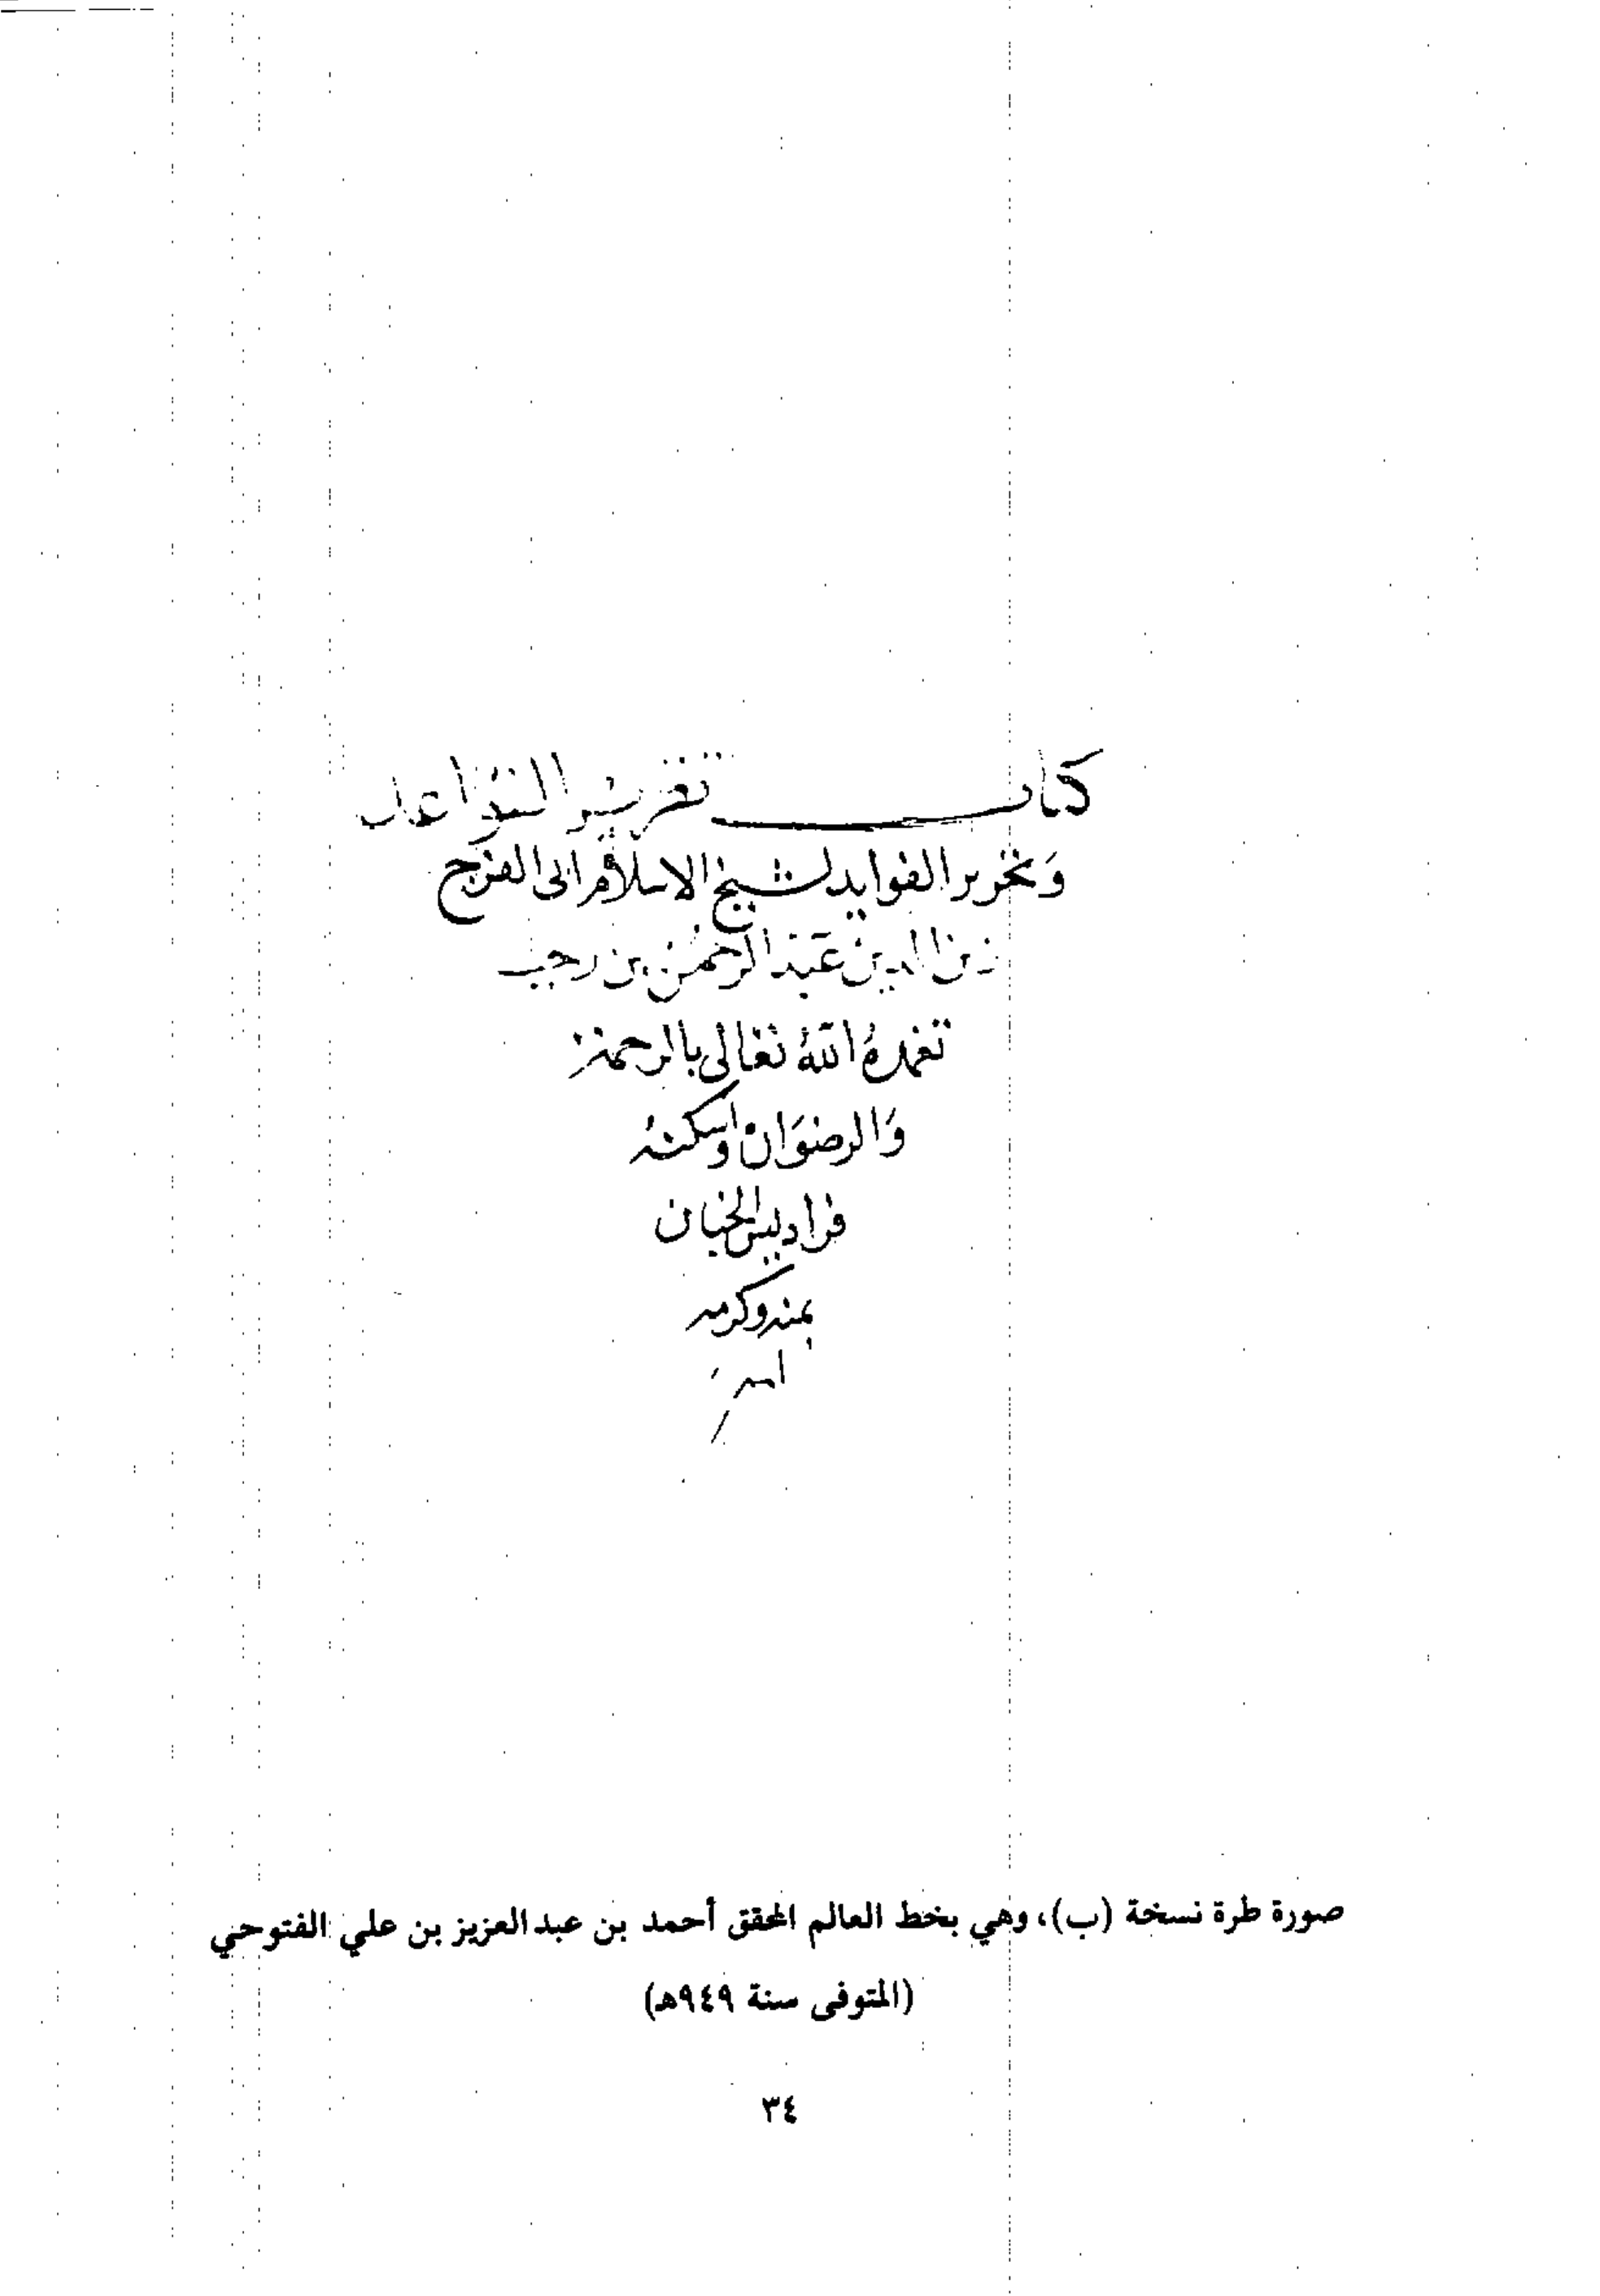 كتاب تقرير القواعد
وَتحرير الفوايد لشيخ الاسلام ابى الفرج
زين الدين عَبد الرحمٰن بن رجب
تغمدهُ اللهُ تعَالى بالرحمة
وَالرضوَان واسكنهُ
فراديس الجنان
بمنه وكرمه
امين
صورة طرة نسخة (ب)، وهي بخط العالم المحقق أحمد بن عبد العزيز بن علي الفتوحي
(المتوفى سنة ٩٤٩هـ)
٣٤